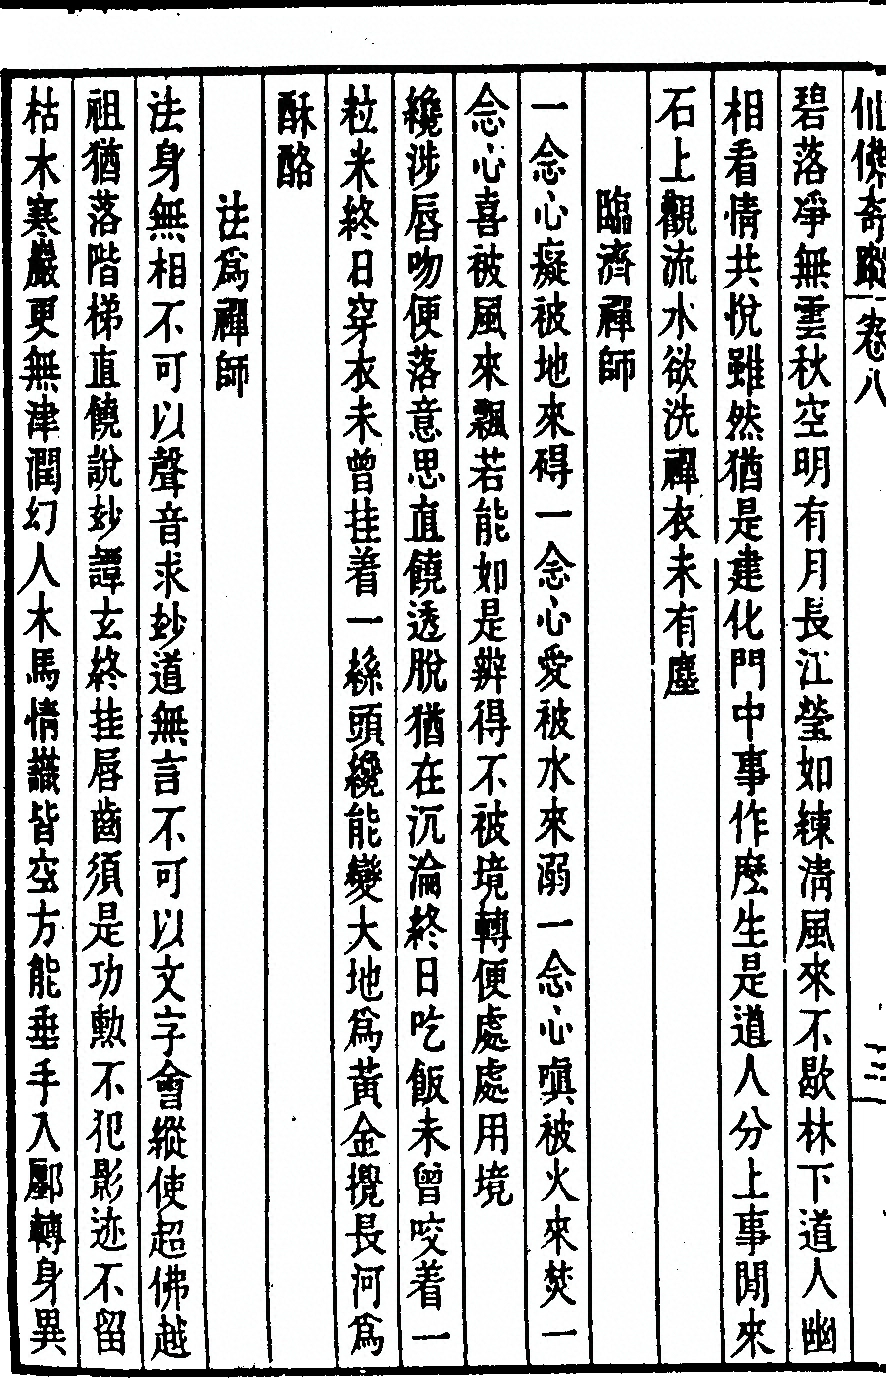 仙佛奇蹤 卷八 三
碧落淨無雲秋空明有月長江瑩如練淸風來不歇林下道人幽
相看情共悅雖然猶是建化門中事作麽生是道人分上事閒來
石上觀流水欲洗禪衣未有塵
臨濟禪師
一念心癡被地來碍一念心愛被水來溺一念心嗔被火來焚一
念心喜被風來飄若能如是辦得不被境轉便處處用境
纔涉唇吻便落意思直饒透脫猶在沉淪終日吃飯未曾咬着一
粒米終日穿衣未曾挂着一絲頭纔能變大地爲黃金攪長河爲
酥酪
法爲禪師
法身無相不可以聲音求玅道無言不可以文字會縱使超佛越
祖猶落階梯直饒說玅譚玄終挂唇齒須是功勳不犯影迹不留
枯木寒巖更無津潤幻人木馬情識皆空方能垂手入鄽轉身異